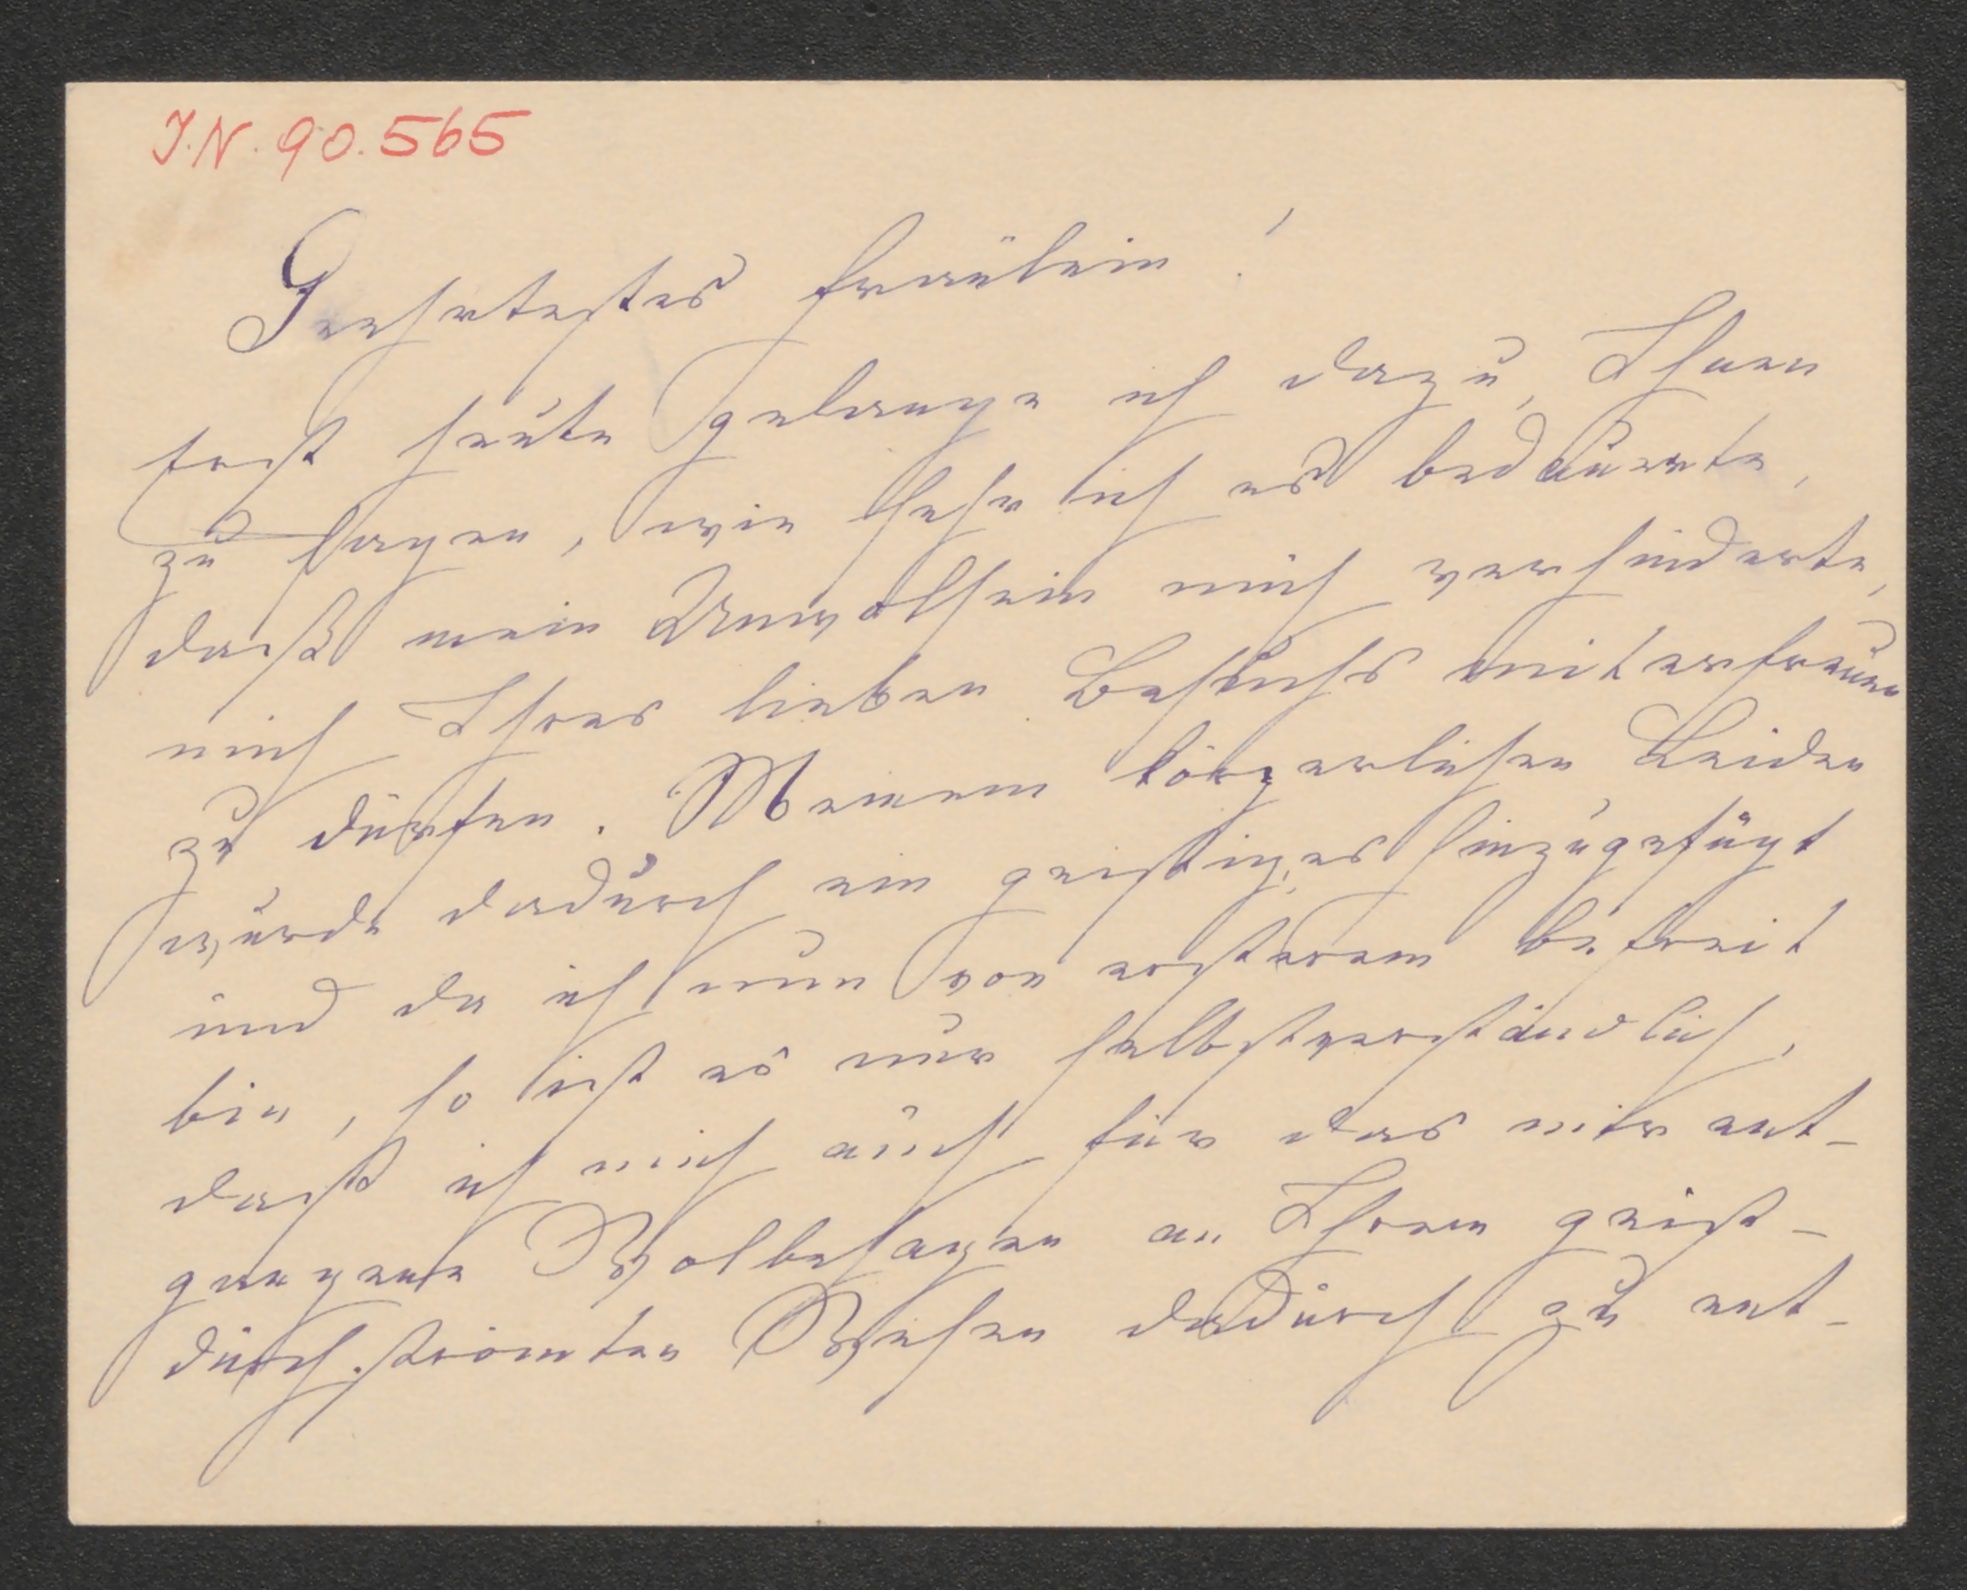 J.N. 90.565
Geehrtestes Fräulein!
Erst heute gelange ich dazu, Ihnen
zu sagen, wie sehr ich es bedauerte,
daß mein Unwolsein mich verhinderte,
mich Ihres lieben Besuchs miterfreuen
zu dürfen. Meinem körperlichen Leiden
wurde dadurch ein geistiges hinzugefügt
und da ich nun von ersterem befreit
bin, so ist es nur selbstverständlich,
daß ich mich auch für das mir ent-
gangene Wolbehagen an Ihrem geist-
durchströmten Wesen dadurch zu ent-